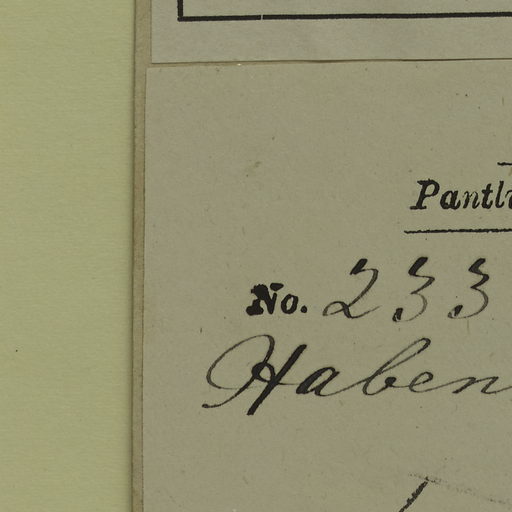 Pantl
No. 233
Haben